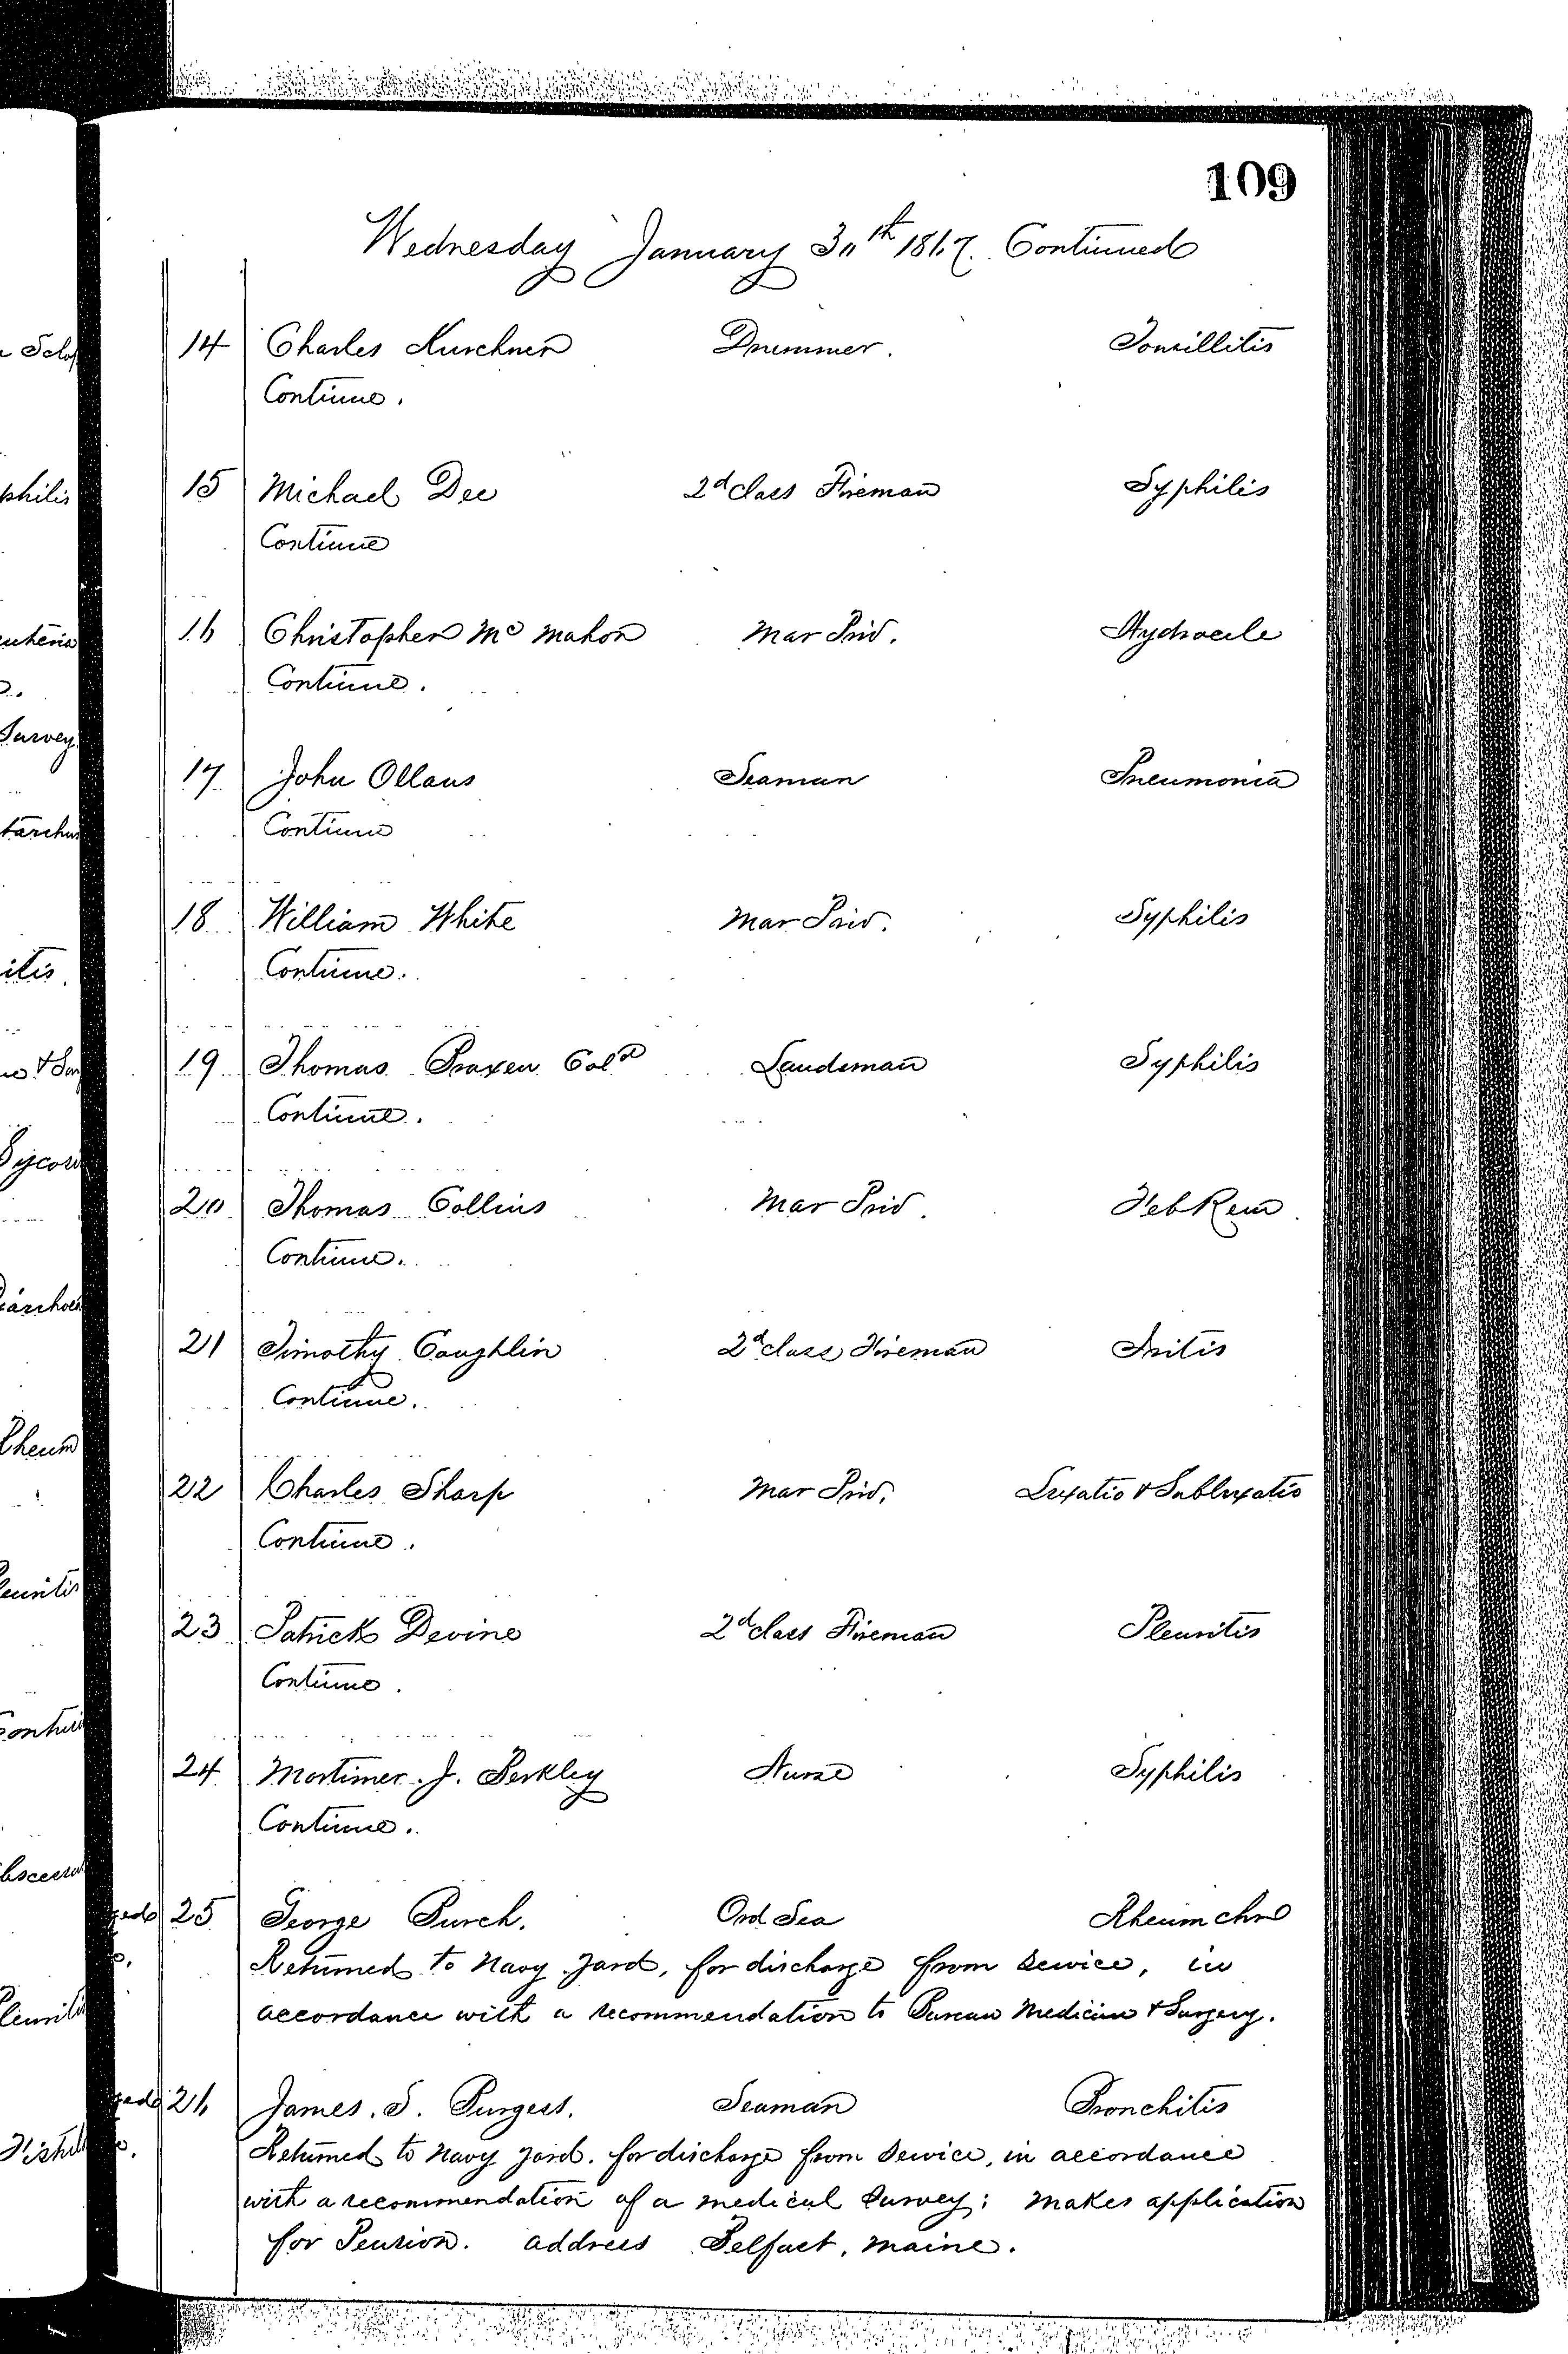 109
Wednesday January 30th 1867. Continued
14 Charles Kurchner Drummer. Tonsillitis
Continue.
15 Michael Dee 2d class Fireman Syphilis
Continue
16 Christopher Mc Mahon Mar Priv. Hydrocele
Continue.
17 John Ollaus Seaman Pneumonia
Continue
18 William White Mar Priv. Syphilis
Continue.
19 Thomas Braxen Cold Landsman Syphilis
Continue.
20 Thomas Collins Mar Priv. Feb Rem.
Continue.
21 Timothy Coughlin 2d class Fireman Iritis
Continue.
22 Charles Sharp Mar Priv. Luxatio & Subluxatio
Continue.
23 Patrick Devine 2d class Fireman Pleuritis
Continue.
24 Mortimer J. Berkley Nurse Syphilis
Continue.
25 George Burch. Ord Sea Rheum chro
Returned to Navy Yard, for discharge from service, in
accordance with a recommendation to Bureau Medicine & Surgery.
26 James. S. Burgess. Seaman Bronchitis
Returned to Navy Yard. for discharge from service, in accordance
with a recommendation of a medical survey; makes application
for Pension. address Belfast, Maine.